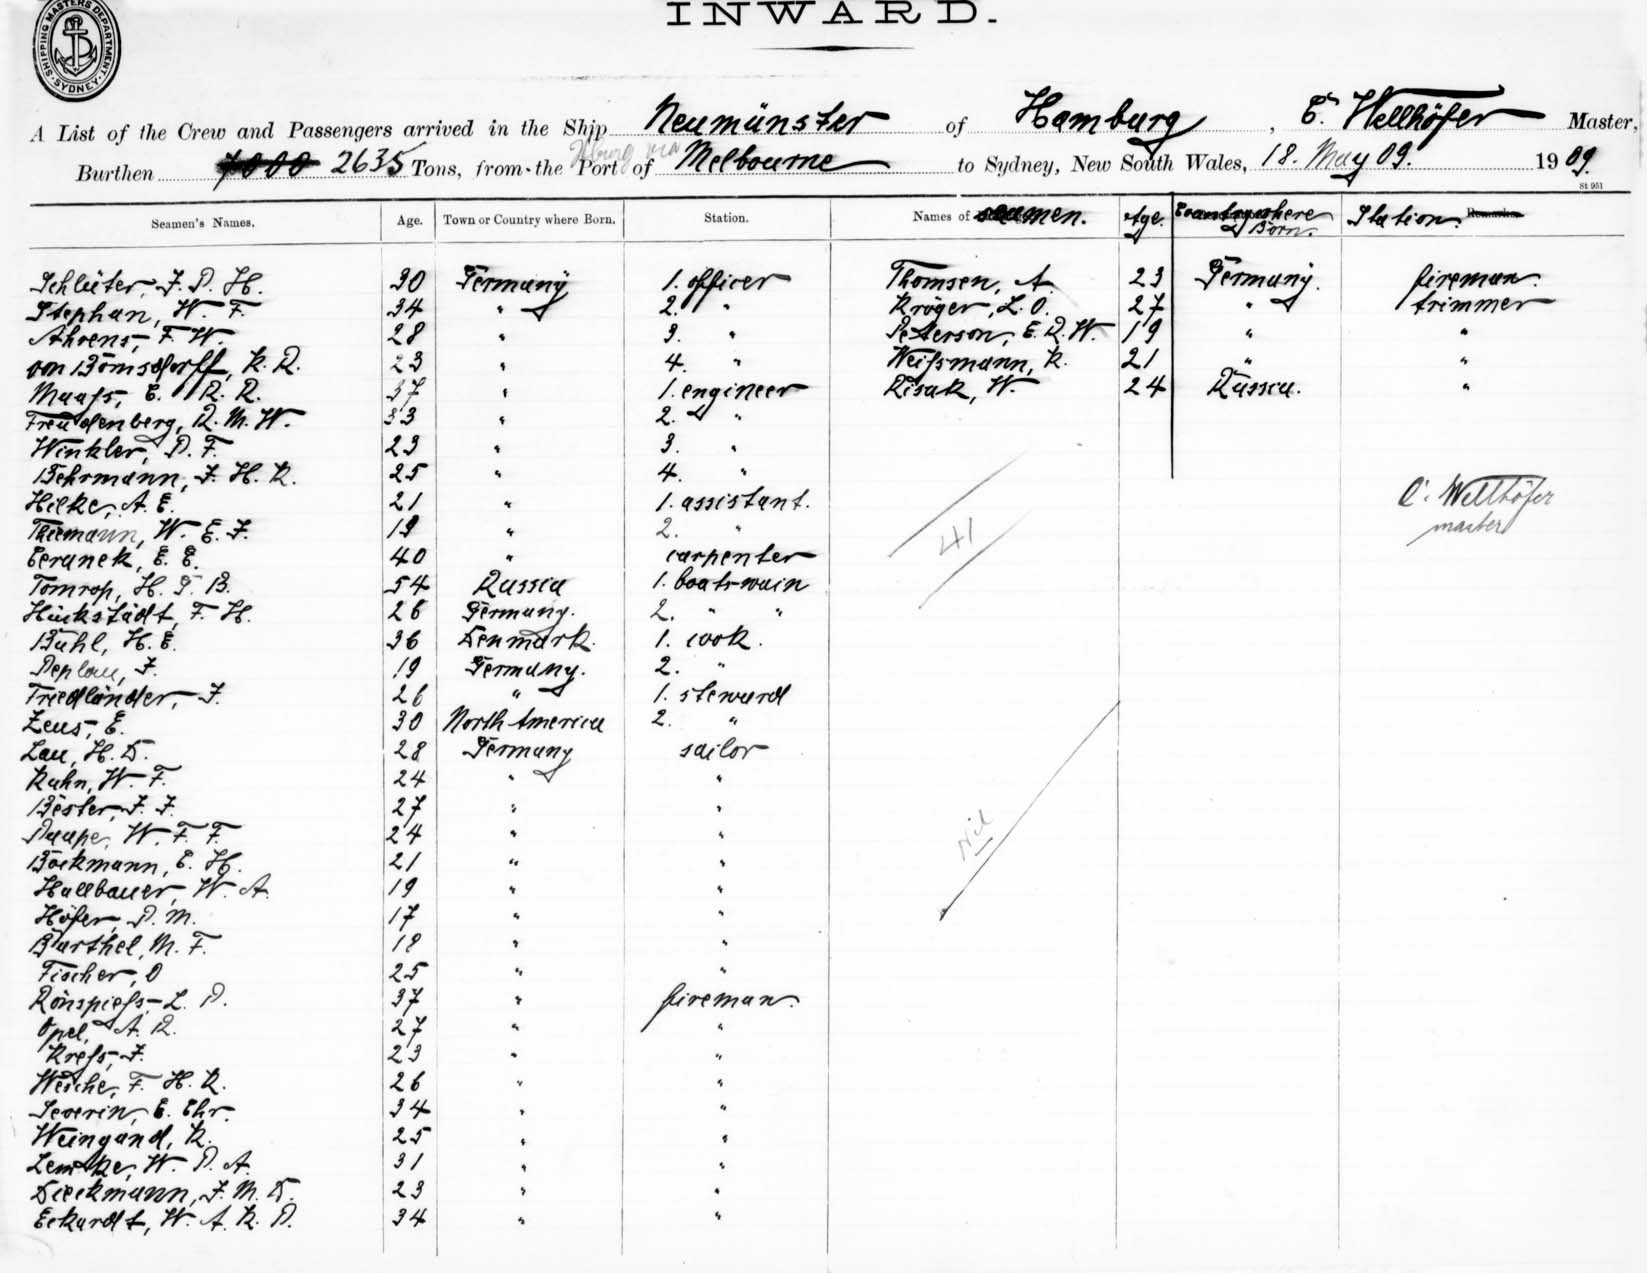 INWARD.
SHIPPING MASTERS DEPARTMENT. SYDNEY
A List of the Crew and Passengers arrived in the Ship Neumünster of Hamburg, C. Wellhöfer Master,
Burthen 7000 2635 Tons, from the Port of Hburg via Melbourne to Sydney, New South Wales, 18. May 09. 1909.
St 951
Seamen's Names. Age. Town or Country where Born. Station. Names of seamen. Age. Country where Born. Station. Remarks.
Schlüter, J. P. H. 30 Germany 1. officer Thomsen, A. 23 Germany. fireman.
Stephan, W. F. 34 " 2. " Kröger, L. O. 27 " trimmer
Ahrens, F. W. 28 " 3. " Petterson, E. R. W. 19 " "
von Bömsdorff, K. R. 23 " 4. " Weifsmann, K. 21 " "
Maafs, E. R. R. 37 " 1. engineer Risak, W. 24 Russia. "
Freudenberg, R. M. W. 33 " 2. "
Winkler, P. F. 23 " 3. "
Behrmann, J. H. K. 25 " 4. "
Hilke, A. E. 21 " 1. assistant.
Thiemann, W. E. J. 19 " 2. "
Beranek, E. E. 40 " carpenter
Tomrop, H. T. B. 54 Russia 1. boatswain
Hückstädt, F. H. 26 Germany. 2. " "
Buhl, H. E. 36 Denmark. 1. cook.
Peplau, J. 19 Germany. 2. "
Friedländer, J. 26 " 1. steward
Zeus, E. 30 North America 2. "
Lau, H. D. 28 Germany sailor
Kuhn, W. F. 24 " "
Bester, J. J. 27 " "
Paape, W. F. F. 24 " "
Böckmann, E. H. 21 " "
Hallbauer, W. A. 19 " "
Höfer, P. M. 17 " "
Barthel, M. F. 18 " "
Fischer, O 25 " "
Rönspiefs, L. P. 37 " fireman.
Opel, A. R. 27 " "
Krefs, J. 23 " "
Wesche, F. H. K. 26 " "
Severin, E. Chr. 34 " "
Weingand, K. 25 " "
Lemcke, W. P. A. 31 " "
Dieckmann, J. M. D. 23 " "
Eckardt, W. A. K. P. 34 " "
41
C. Wellhöfer
master
Nil